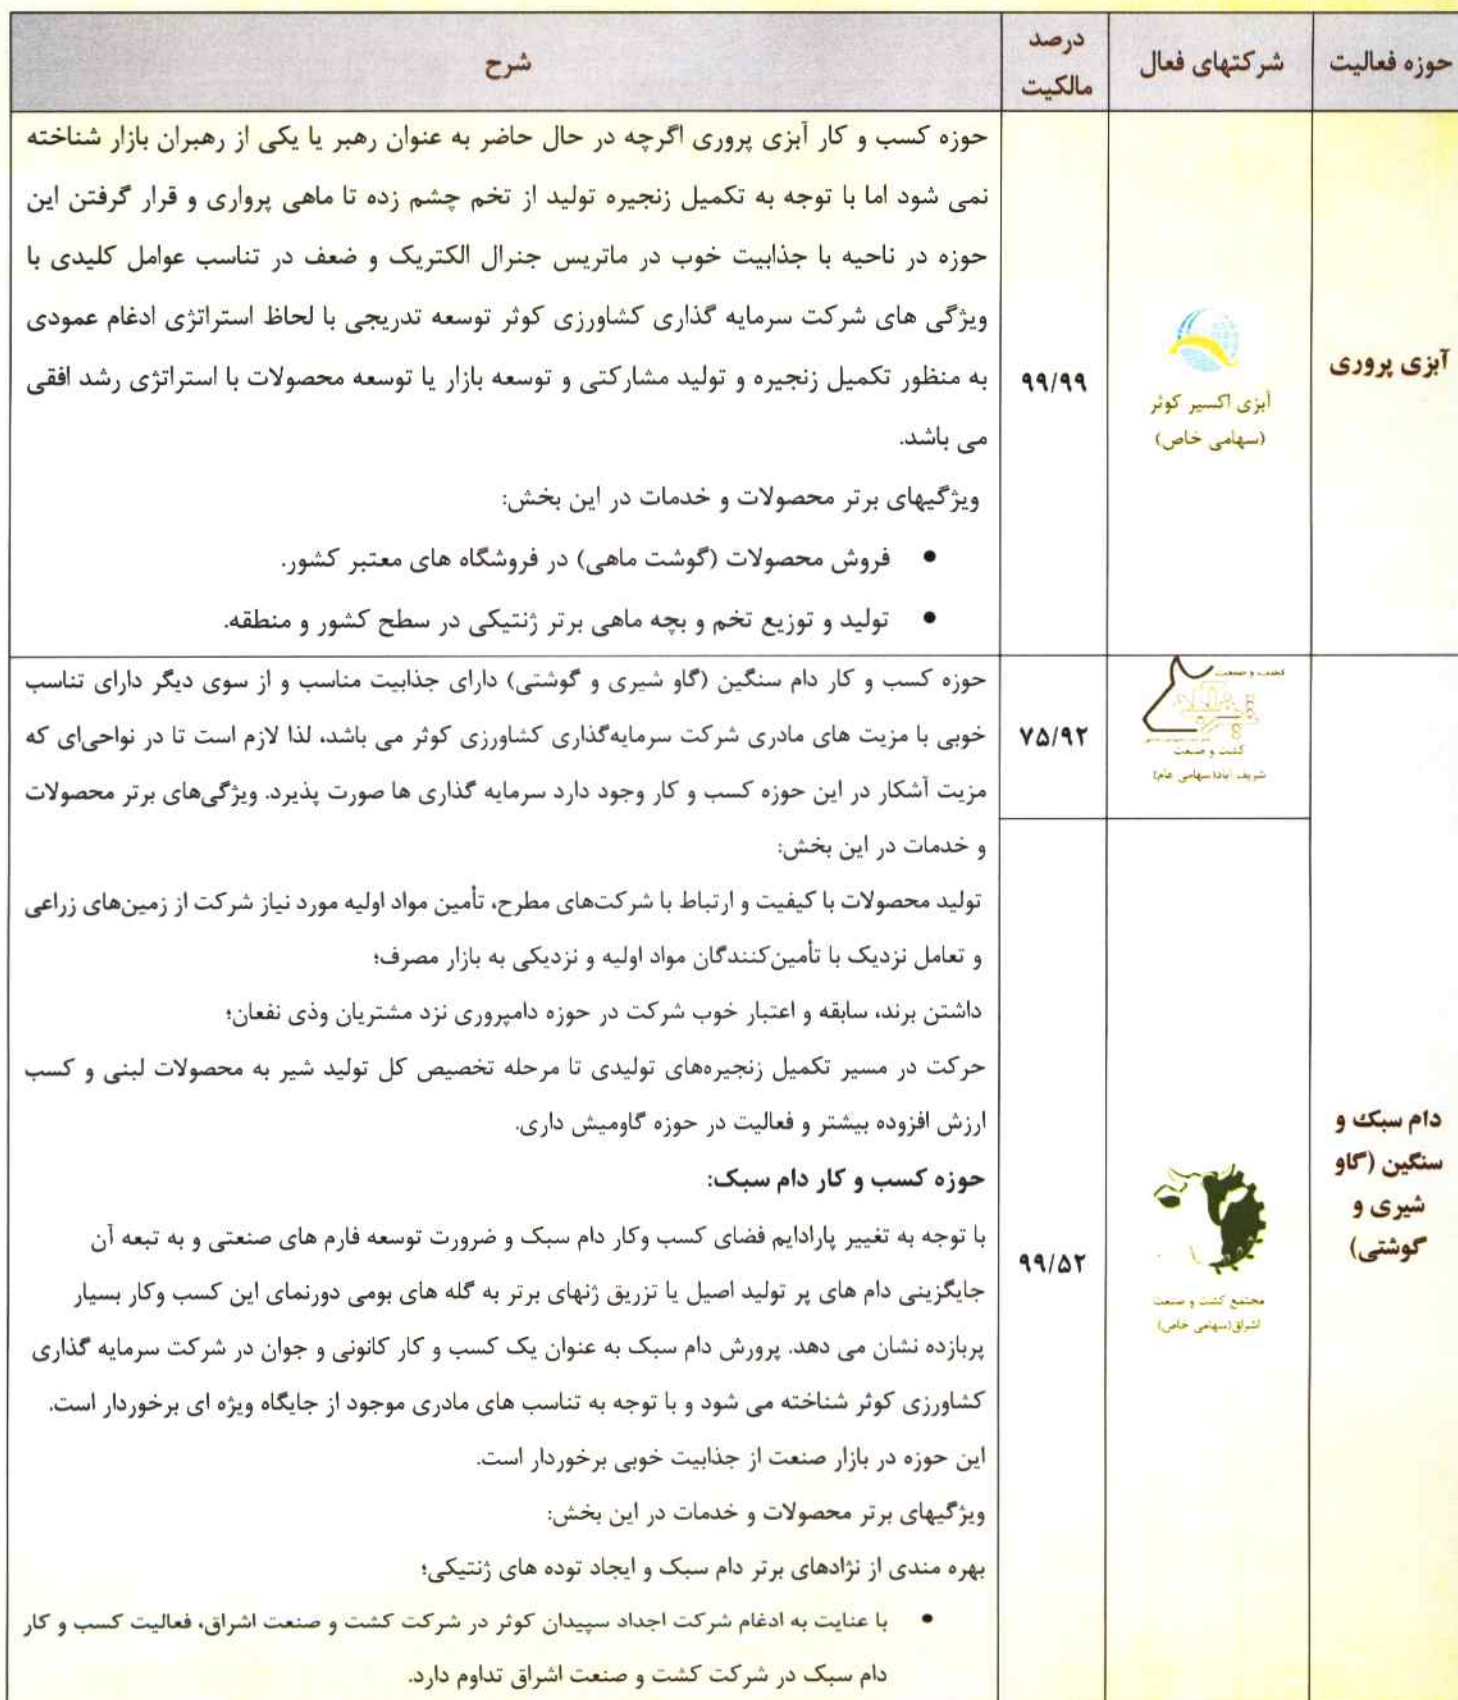 حوزه فعالیت
شرکتهای فعال
درصد
مالکیت
شرح
آبزی پروری
آبزی اکسیر کوثر
(سهامی خاص)
۹۹/۹۹
حوزه کسب و کار آبزی پروری اگرچه در حال حاضر به عنوان رهبر یا یکی از رهبران بازار شناخته
نمی شود اما با توجه به تکمیل زنجیره تولید از تخم چشم زده تا ماهی پرواری و قرار گرفتن این
حوزه در ناحیه با جذابیت خوب در ماتریس جنرال الکتریک و ضعف در تناسب عوامل کلیدی با
ویژگی های شرکت سرمایه گذاری کشاورزی کوثر توسعه تدریجی با لحاظ استراتژی ادغام عمودی
به منظور تکمیل زنجیره و تولید مشارکتی و توسعه بازار یا توسعه محصولات با استراتژی رشد افقی
می باشد.
ویژگیهای برتر محصولات و خدمات در این بخش:
• فروش محصولات (گوشت ماهی) در فروشگاه های معتبر کشور.
• تولید و توزیع تخم و بچه ماهی برتر ژنتیکی در سطح کشور و منطقه.
دام سبک و
سنگین (گاو
شیری و
گوشتی)
کشت و صنعت
کشت و صنعت
شریف آباد(سهامی عام)
۷۵/۹۲
مجتمع کشت و صنعت
اشراق(سهامی خاص)
۹۹/۵۲
حوزه کسب و کار دام سنگین (گاو شیری و گوشتی) دارای جذابیت مناسب و از سوی دیگر دارای تناسب
خوبی با مزیت های مادری شرکت سرمایه‌گذاری کشاورزی کوثر می باشد، لذا لازم است تا در نواحی‌ای که
مزیت آشکار در این حوزه کسب و کار وجود دارد سرمایه گذاری ها صورت پذیرد. ویژگی‌های برتر محصولات
و خدمات در این بخش:
تولید محصولات با کیفیت و ارتباط با شرکت‌های مطرح، تأمین مواد اولیه مورد نیاز شرکت از زمین‌های زراعی
و تعامل نزدیک با تأمین‌کنندگان مواد اولیه و نزدیکی به بازار مصرف؛
داشتن برند، سابقه و اعتبار خوب شرکت در حوزه دامپروری نزد مشتریان وذی نفعان؛
حرکت در مسیر تکمیل زنجیره‌های تولیدی تا مرحله تخصیص کل تولید شیر به محصولات لبنی و کسب
ارزش افزوده بیشتر و فعالیت در حوزه گاومیش داری.
حوزه کسب و کار دام سبک:
با توجه به تغییر پارادایم فضای کسب وکار دام سبک و ضرورت توسعه فارم های صنعتی و به تبعه آن
جایگزینی دام های پر تولید اصیل یا تزریق ژنهای برتر به گله های بومی دورنمای این کسب وکار بسیار
پربازده نشان می دهد. پرورش دام سبک به عنوان یک کسب و کار کانونی و جوان در شرکت سرمایه گذاری
کشاورزی کوثر شناخته می شود و با توجه به تناسب های مادری موجود از جایگاه ویژه ای برخوردار است.
این حوزه در بازار صنعت از جذابیت خوبی برخوردار است.
ویژگیهای برتر محصولات و خدمات در این بخش:
بهره مندی از نژادهای برتر دام سبک و ایجاد توده های ژنتیکی؛
• با عنایت به ادغام شرکت اجداد سپیدان کوثر در شرکت کشت و صنعت اشراق، فعالیت کسب و کار
دام سبک در شرکت کشت و صنعت اشراق تداوم دارد.